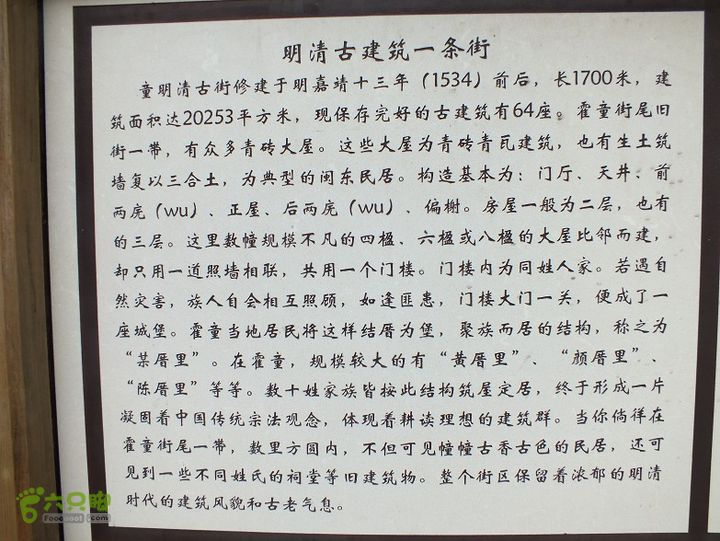 明清古建筑一条街
童明清古街修建于明嘉靖十三年（1534）前后，长1700米，建
筑面积达20253平方米，现保存完好的古建筑有64座。霍童街尾旧
街一带，有众多青砖大屋。这些大屋为青砖青瓦建筑，也有生土筑
墙复以三合土，为典型的闽东民居。构造基本为：门厅、天井、前
两庑（wu）、正屋、后两庑（wu）、偏榭。房屋一般为二层，也有
的三层。这里数幢规模不凡的四楹、六楹或八楹的大屋比邻而建，
却只用一道照墙相联，共用一个门楼。门楼内为同姓人家。若遇自
然灾害，族人自会相互照顾，如逢匪患，门楼大门一关，便成了一
座城堡。霍童当地居民将这样结厝为堡，聚族而居的结构，称之为
“某厝里”。在霍童，规模较大的有“黄厝里”、“颜厝里”、
“陈厝里”等等。数十姓家族皆按此结构筑屋定居，终于形成一片
凝固着中国传统宗法观念，体现着耕读理想的建筑群。当你倘徉在
霍童街尾一带，数里方圆内，不但可见幢幢古香古色的民居，还可
见到一些不同姓氏的祠堂等旧建筑物。整个街区保留着浓郁的明清
时代的建筑风貌和古老气息。
六只脚
Foooooot.com